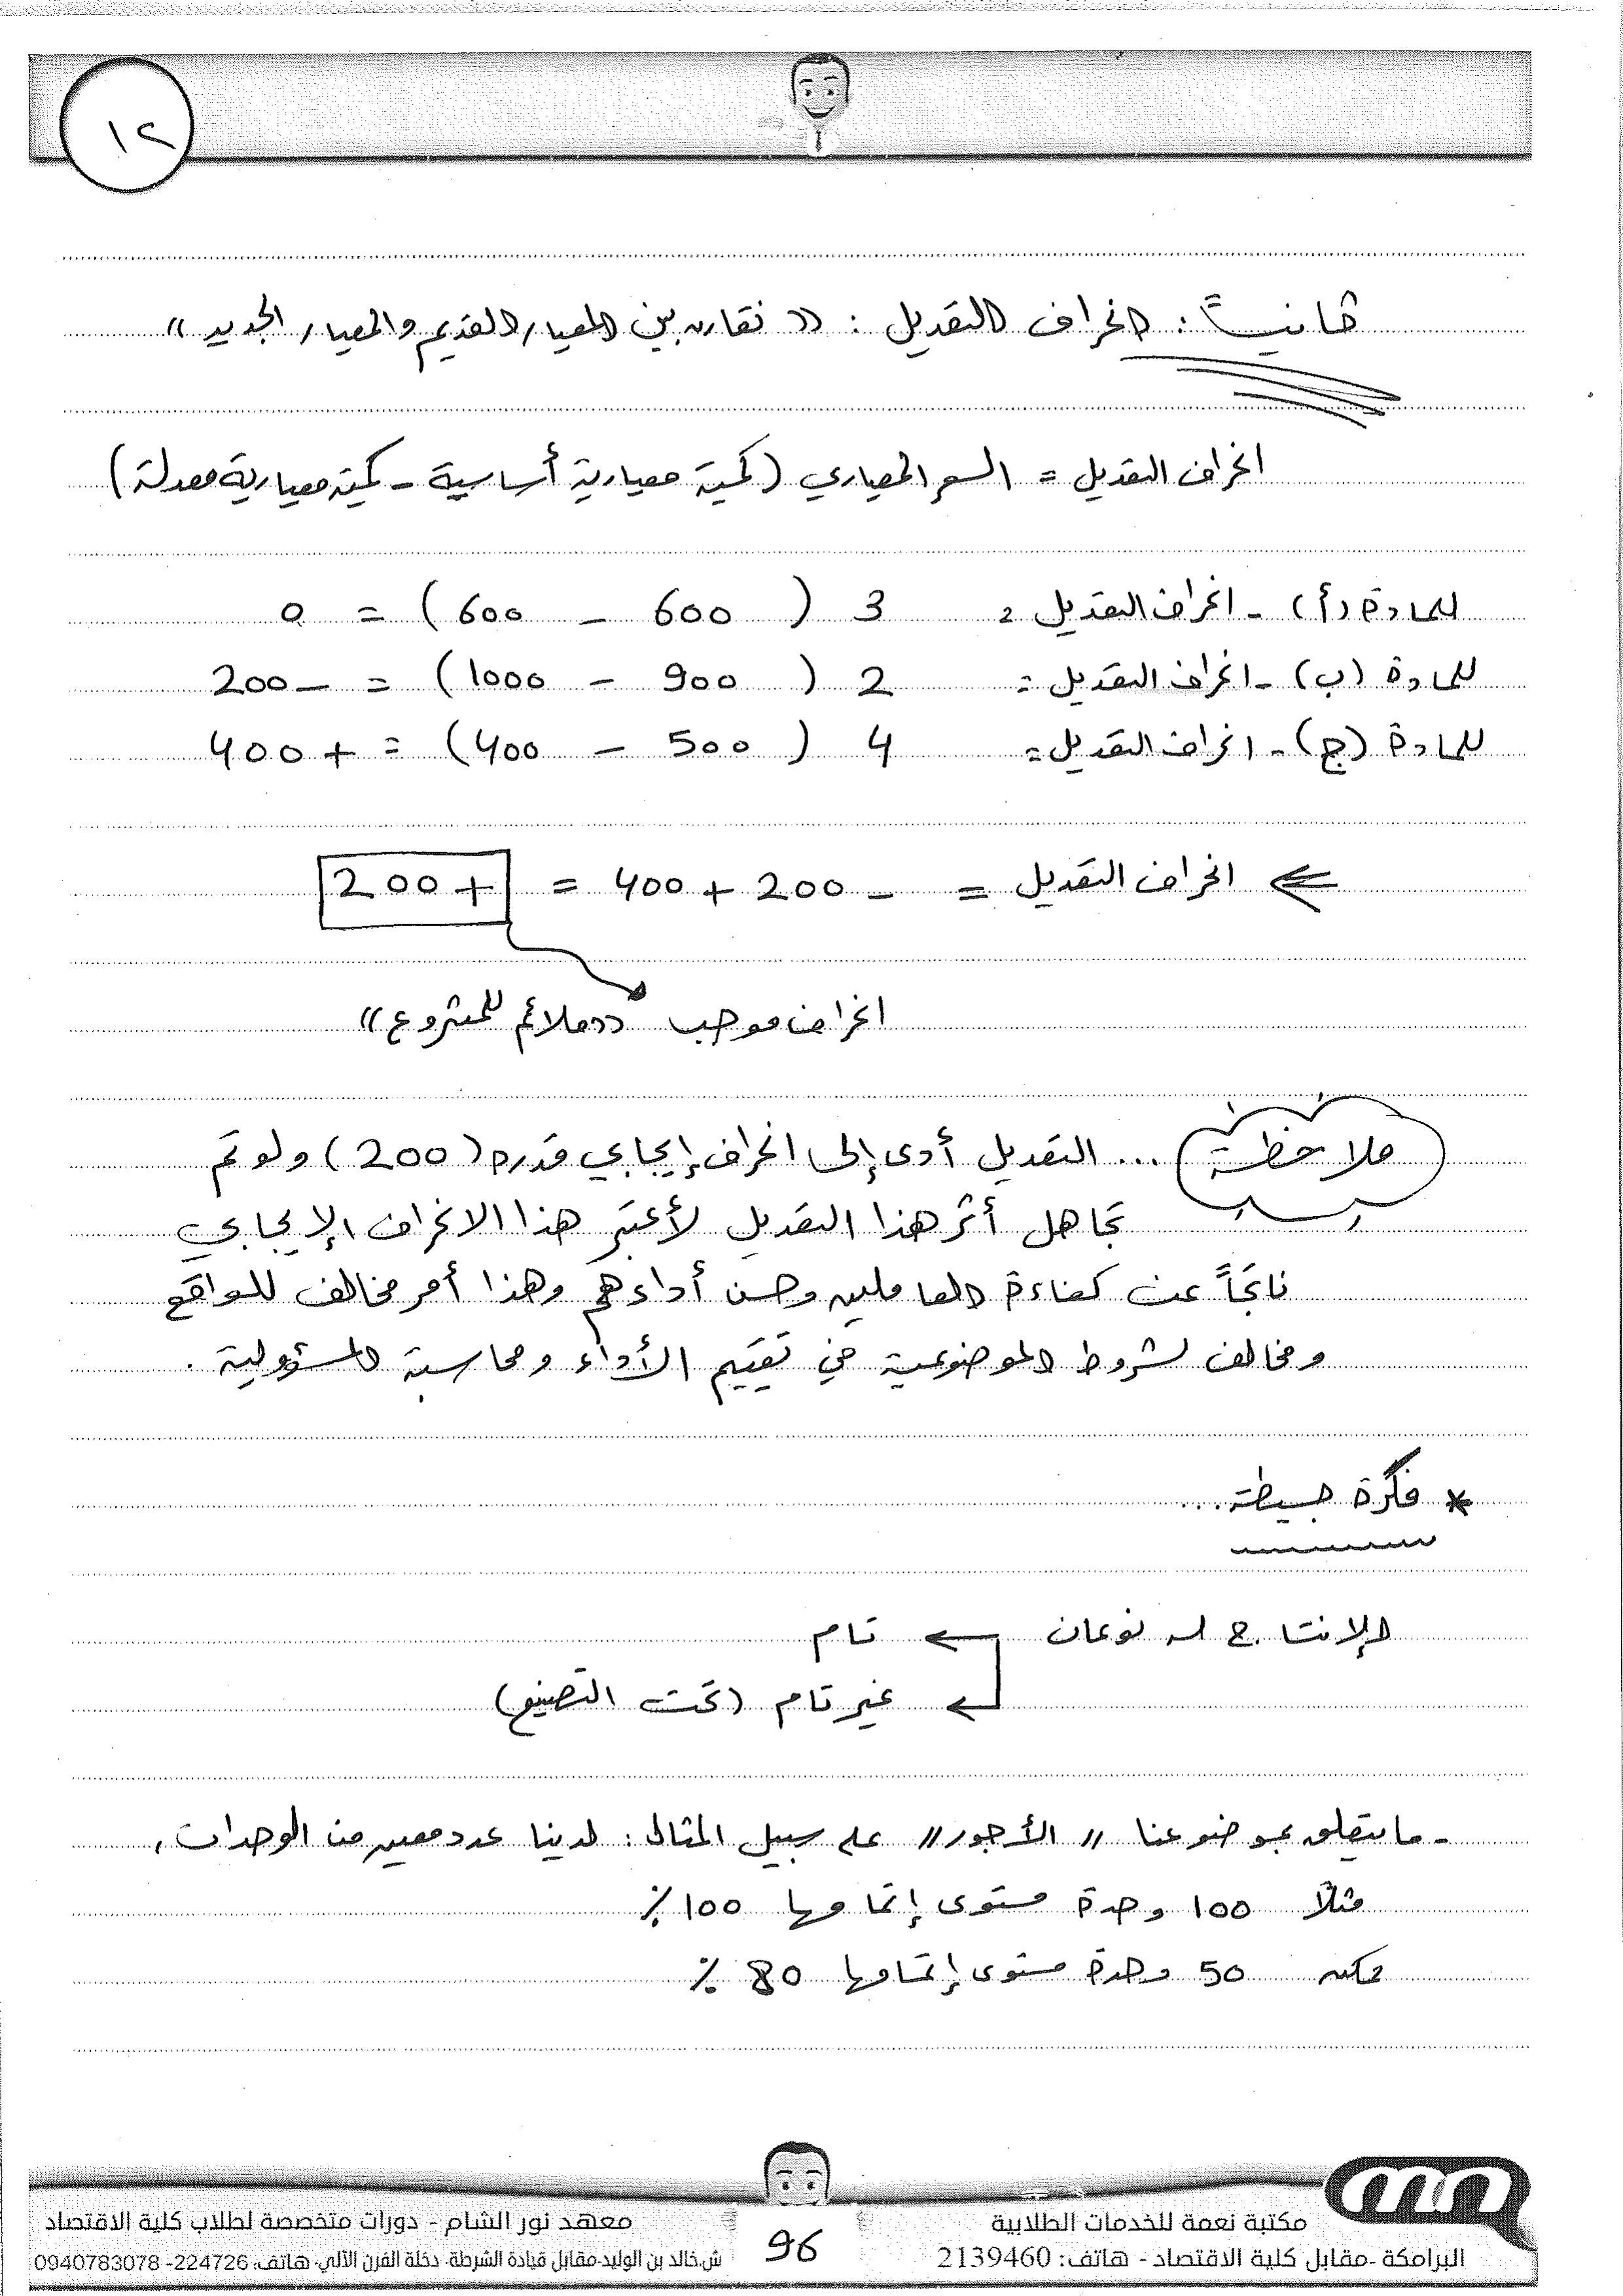 ١٢
ثانياً : انحراف التعديل : (( نقارن بين المعيار القديم والمعيار الجديد ))
انحراف التعديل = السعر المعياري (كمية معيارية أساسية - كمية معيارية معدلة)
للمادة (أ) - انحراف التعديل = 3 (600 - 600) = 0
للمادة (ب) - انحراف التعديل = 2 (900 - 1000) = -200
للمادة (ج) - انحراف التعديل = 4 (500 - 400) = +400
⇐ انحراف التعديل = -200 + 400 = +200
انحراف موجب ((ملائم للمشروع))
ملاحظة ... التعديل أدى إلى انحراف إيجابي قدره (200) ولو تم
تجاهل أثر هذا التعديل لأعتبر هذا الانحراف الإيجابي
ناتجاً عن كفاءة العاملين وحسن أداءهم وهذا أمر مخالف للواقع
ومخالف لشروط الموضوعية في تقييم الأداء ومحاسبة المسؤولية .
* فكرة بسيطة ...
الإنتاج له نوعان ← تام
← غير تام (تحت التصنيع)
- ما يتعلق بموضوعنا "الأجور" على سبيل المثال : لدينا عدد معين من الوحدات ,
مثلاً 100 وحدة مستوى إتمامها 100 %
ممكن 50 وحدة مستوى إتمامها 80 %
مكتبة نعمة للخدمات الطلابية
البرامكة -مقابل كلية الاقتصاد - هاتف: 2139460
96
معهد نور الشام - دورات متخصصة لطلاب كلية الاقتصاد
ش.خالد بن الوليد-مقابل قيادة الشرطة- دخلة الفرن الآلي- هاتف: 224726- 0940783078